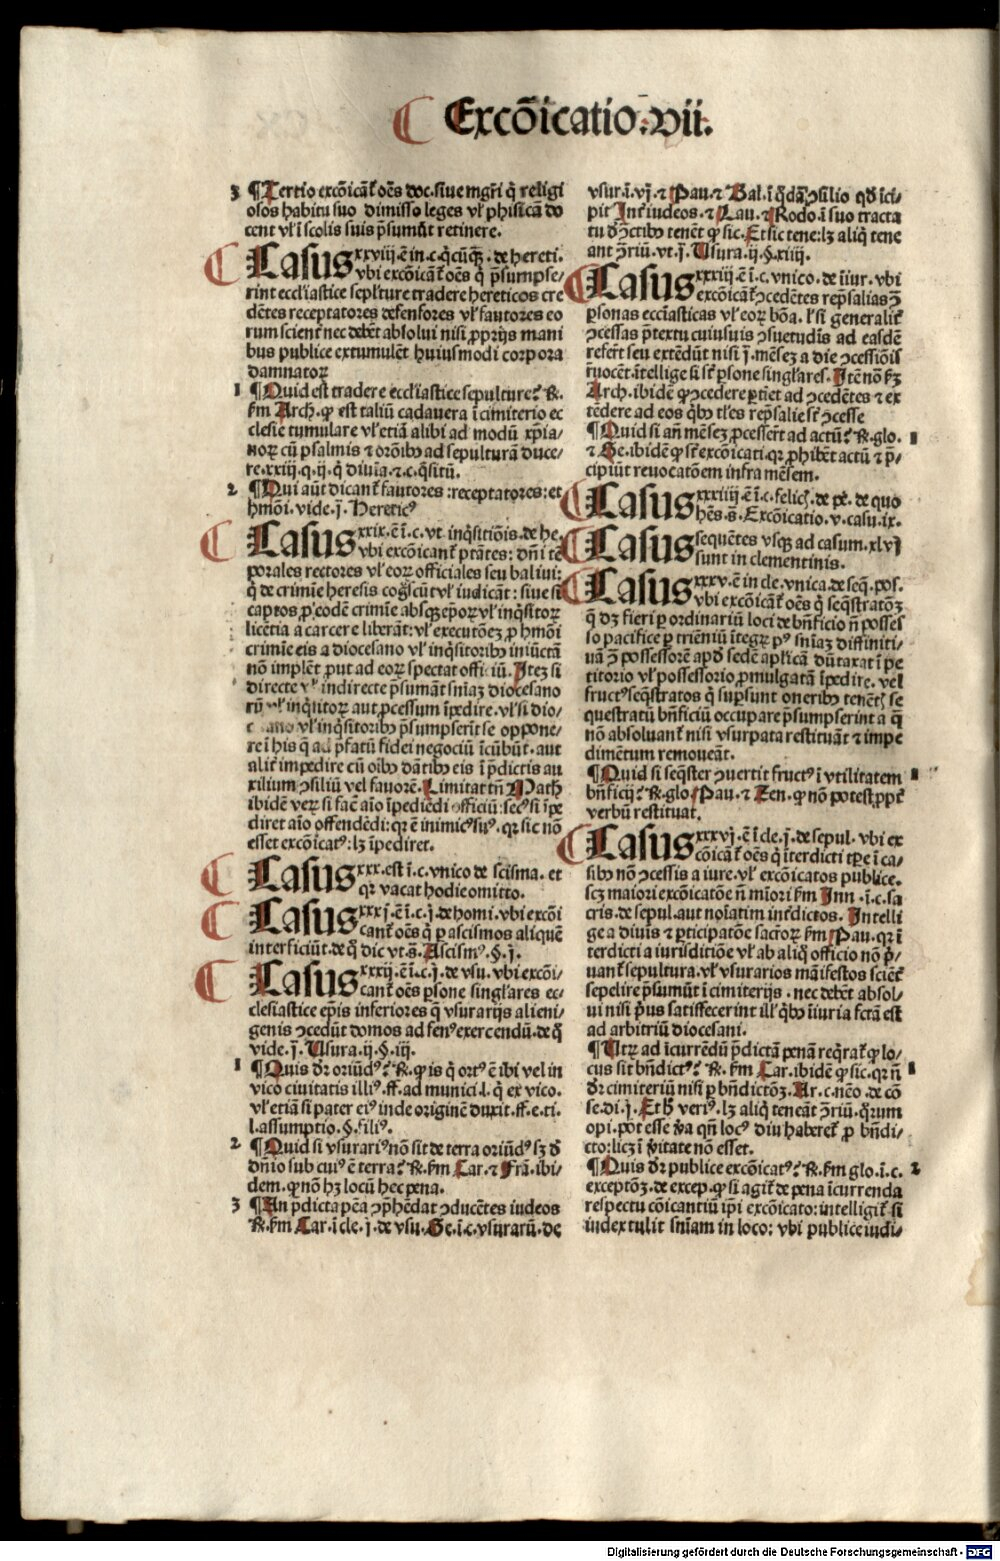 Excōicatio .vii.
3 ¶Tertio excōicāt oēs doc. siue mgr̄i q̇ religi
osos habitu suo dimisso leges vl̓ phisicā do
cent vl̓ ī scolis suis p̄sumūt retinere.
Casus xxviij ē in .c. q̇cūqꝫ. de hereti.
vbi excōicāt oēs q̇ p̄sumpse/
rint eccl̓iastice sepl̓ture tradere hereticos cre
dētes receptatores defensores vl̓ fautores eo
rum scient̄ nec debēt absolui nisi ꝓprijs mani
bus publice extumulēt huiusmodi corpora
damnatoꝝ
1 ¶Quid est tradere eccl̓iastice sepulture? ℟.
ẜm Arch. ꝙ est taliū cadauera ī cimiterio ec
clesie tumulare vl̓ etiā alibi ad modū xp̄ia/
noꝝ cū psalmis ⁊ orōibꝰ ad sepulturā duce/
re. xxiij. q. ij. q̇ diuīa. ⁊ .c. q̇sitū.
2 ¶Qui aūt dicant̄ fautores: receptatores: et
hm̄oi. vide .j. Hereticꝰ
Casus xxix. ē ī .c. vt inq̇sitiōis. de he.
vbi excōicant̄ ptātes: dn̄i tē
porales rectores vl̓ eoꝝ officiales seu baliui:
q̇ de crimīe heresis cogscūt vl̓ iudicāt: siue si
captos ꝓ eodē crimīe absqꝫ ep̄oꝝ vl̓ inq̇sitoꝝ
licētia a carcere liberāt: vl̓ executōeꝫ ꝓ hm̄oi
crimīe eis a diocesano vl̓ inq̇sitoribꝰ iniūctā
nō implēt ꝓut ad eoꝝ spectat officiū. Iteꝫ si
directe vl̓ indirecte p̄sumāt snīaꝫ diocesano
rū vl̓ inq̇sitoꝝ aut ꝓcessum īpedire. vl̓ si dio/
cesano vl̓ inq̇sitoribꝰ p̄sumpserīt se oppone/
re ī his q̄ ad p̄fatū fidei negociū īcūbūt. aut
alit̄ impedire cū oībꝰ dātibꝰ eis ī p̄dictis au
xilium ꝯsiliū vel fauorē. Limitat tn̄ Math
ibidē veꝝ si facē aīo īpediēdi officiū: secꝰ si īpe
diret aīo offendēdi: qꝛ ē inimicꝰ suꝰ. qꝛ sic nō
esset excōicatꝰ: lꝫ īpediret.
Casus xxx. est ī .c. vnico de scisma. et
qꝛ vacat hodie omitto.
Casus xxxj. ē ī .c. j. de homi. vbi excōi
cant̄ oēs q̇ ꝑ ascismos aliquē
interficiūt. de q̇ dic vt .s. Ascismꝰ .§. j.
Casus xxxij. ē ī .c. j. de vsu. vbi excōi/
cant̄ oēs ꝑsone singl̓ares ec/
clesiastice ep̄is inferiores q̇ vsurarijs alieni/
genis ꝯcedūt domos ad fenꝰ exercendū. de q̇
vide .j. Usura. ij. §. iij.
1 ¶Quis dr̄ oriūdꝰ? ℟. ꝙ is q̇ ortꝰ ē ibi vel in
vico ciuitatis illiꝰ. ff. ad munici. l. q̇ ex vico.
vl̓ etiā si pater eiꝰ inde originē duxit. ff. e. ti.
l. assumptio. §. filiꝰ.
2 ¶Quid si vsurariꝰ nō sit de terra oriūdꝰ sꝫ d̄
dn̄io sub cuiꝰ ē terra? ℟. ẜm Car. ⁊ Frā. ibi/
dem. ꝙ nō hꝫ locū hec pena.
3 ¶An p̄dicta pēa ꝯp̄hēdat ꝯducētes iudeos
℟. ẜm Car. ī cle. j. de vsu. Ge. ī .c. vsurarū. de
vsur. ī. vj. ⁊ Pau. ⁊ Bal. ī q̇dā ꝯsilio qd̄ īci/
pit Int̄ iudeos. ⁊ Lau. ⁊ Rodo. ī suo tracta
tu d̄ ꝯctibꝰ tenēt ꝙ sic. Et sic tene: lꝫ aliq̇ tene
ant ꝯ̄riū. vt .j. Usura. ij. §. xiiij.
Casus xxxiij. ē ī .c. vnico. de īiur. vbi
excōicāt̄ ꝯcedētes rep̄salias ꝯ̄
ꝑsonas eccl̓iasticas vl̓ eoꝝ bōa. l̓ si generalit̄
ꝯcessas p̄textu cuiusuis ꝯsuetudīs ad easdē
refert̄ seu extēdūt nisi j. mēseꝫ a die ꝯcessiōis
ruocēt. ītellige si st̄ ꝑsone singl̓ares. Itē nō ẜꝫ
Arch. ibidē ꝙ ꝯcedere ꝑtīet ad ꝯcedētes ⁊ ex
tēdere ad eos q̇bꝰ tl̓es rep̄salie st̄ ꝯcesse
¶Quid si an̄ mēseꝫ ꝓcesser̄t ad actū? ℟. glo. 1
⁊ Ge. ibidē ꝙ st̄ excōicati. qꝛ ꝓhibēt actū ⁊ p̄/
cipiūt reuocatōem infra mēsem.
Casus xxxiiij ē ī .c. felich. de pe. de quo
hēs .s. Excōicatio. v. casu. ix.
Casus sequētes vsqꝫ ad casum. xlvj
sunt in clementinis.
Casus xxxv. ē in cle. vnica. de seq. pos.
vbi excōicāt̄ oēs q̇ seq̄stratōꝫ
q̄ dꝫ fieri ꝑ ordinariū loci de bn̄ficio n̄ posses
so pacifice ꝑ triēniū ītegꝝ pꝰ snīaꝫ diffiniti/
uā ꝯ̄ possessorē apd̄ sedē aplīcā dūtaxat ī pe
titorio vl̓ possessorio ꝓmulgatā īpedire. vel
fructꝰ seq̄stratos q̇ suꝑsunt oneribꝰ tenēt̄ se
questratū bn̄ficiū occupare p̄sumpserint a q̇
nō absoluant̄ nisi vsurpata restituāt ⁊ impe
dimētum remoueāt.
¶Quid si seq̄ster ꝯuertit fructꝰ ī vtilitatem 1
bn̄ficij? ℟. glo. Pau. ⁊ Zen. ꝙ nō potest ꝓpt̄
verbū restituat.
Casus xxxvj. ē ī cle. j. de sepul. vbi ex
cōicāt̄ oēs q̇ īterdicti tꝑe ī ca/
sibꝰ nō ꝯcessis a iure. vl̓ excōicatos publice.
scꝫ maiori excōicatōe n̄ mīori ẜm Inn. ī .c. sa
cris. de sepul. aut noīatim int̄dictos. Intelli
ge a diuīs ⁊ ꝑticipatōe sacroꝝ ẜm Pau. qꝛ ī
terdicti a iurisditiōe vl̓ ab aliq̇ officio nō p̄/
uant̄ sepultura. vl̓ vsurarios māifestos sciēt̄
sepelire p̄sumūt ī cimiterijs. nec debēt absol/
ui nisi p̄us satisfecerint ill̓ q̇bꝰ īiuria fctā est
ad arbitriū diocesani.
¶Utꝝ ad īcurrēdū p̄dictā penā req̇rat̄ ꝙ lo/
cus sit bn̄dictꝰ? ℟. ẜm Car. ibidē ꝙ sic. qꝛ n̄ 1
dr̄ cimiteriū nisi ꝑ bn̄dictōꝫ. Ar. c. nēo. de cō
se. di. j. Et h̄ veriꝰ. lꝫ aliq̇ teneāt ꝯ̄riū. q̇rum
opi. pōt esse v̄a qn̄ locꝰ diu haberet̄ ꝓ bn̄di/
cto: licꝫ ī v̄itate nō esset.
¶Quis dr̄ publice excōicatꝰ? ℟. ẜm glo. ī .c. 2
exceptōꝫ. de excep. ꝙ si agit̄ de pena īcurrenda
respectu cōicantiū ip̄i excōicato: intelligit̄ si
iudex tulit snīam in loco: vbi publice iudi/
Digitalisierung gefördert durch die Deutsche Forschungsgemeinschaft - DFG